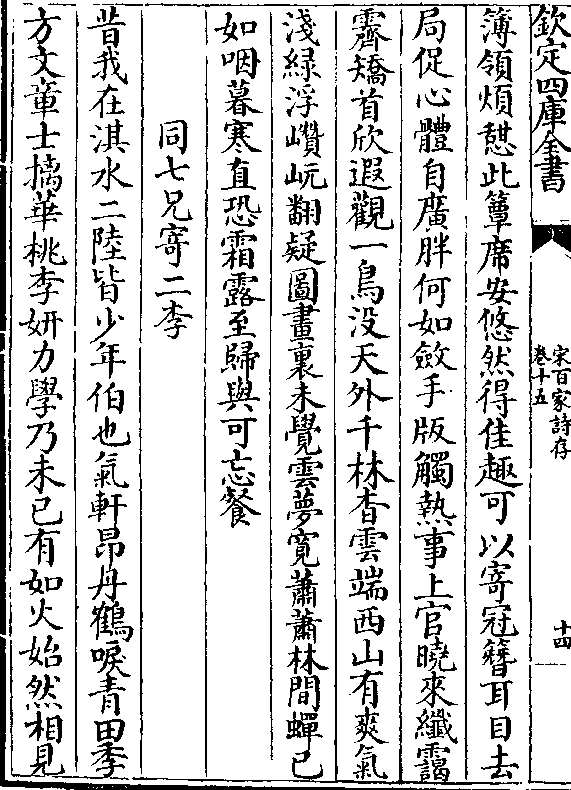 欽定四庫全書
宋百家詩存
卷十五
十四
簿領煩愆此簟席安悠然得佳趣可以寄冠簪耳目去
局促心體自廣胖何如斂手版觸熱事上官曉來纖靄
霽矯首欣遐觀一鳥没天外千林杳雲端西山有爽氣
淺綠浮巑岏翻疑圖畫裏未覺雲夢寛蕭蕭林間蟬已
如咽暮寒直恐霜露至歸與可忘餐
同七兄寄二李
昔我在淇水二陸皆少年伯也氣軒昂丹鶴唳青田季
方文章士摛華桃李妍力學乃未已有如火始然相見